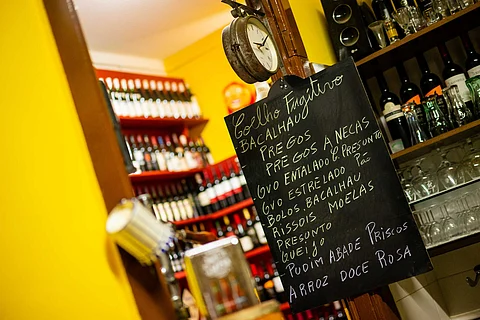 Coelho Fugitivo
BACALHAU
- PREGOS
- PREGOS A NECAS
OVO ENTALADO C. PRESUNTO
OVO ESTRELADO Paz
BOLOS. BACALHAU
RISSOIS MOELAS
PRESUNTO
QUEIJO
- PUDIM ABADE PRISCOS
- ARROZ DOCE ROSA